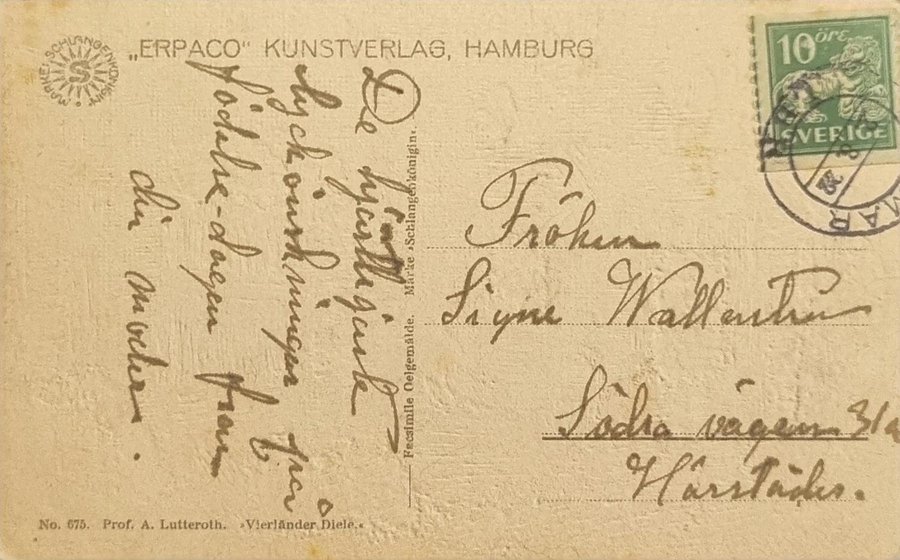 MARKE SCHLANGENKÖNIGIN
S
„ERPACO" KUNSTVERLAG, HAMBURG
10 ÖRE
SVERIGE
KALMAR
De hjärtligaste
lyckönskningar på
födelse-dagen från
din moder.
Facsimile Oelgemälde. Marke »Schlangenkönigin«.
Fröken
Signe Wallenstren
Södra vägen 31a
Härstädes.
No. 675. Prof. A. Lutteroth. »Vierländer Diele.«